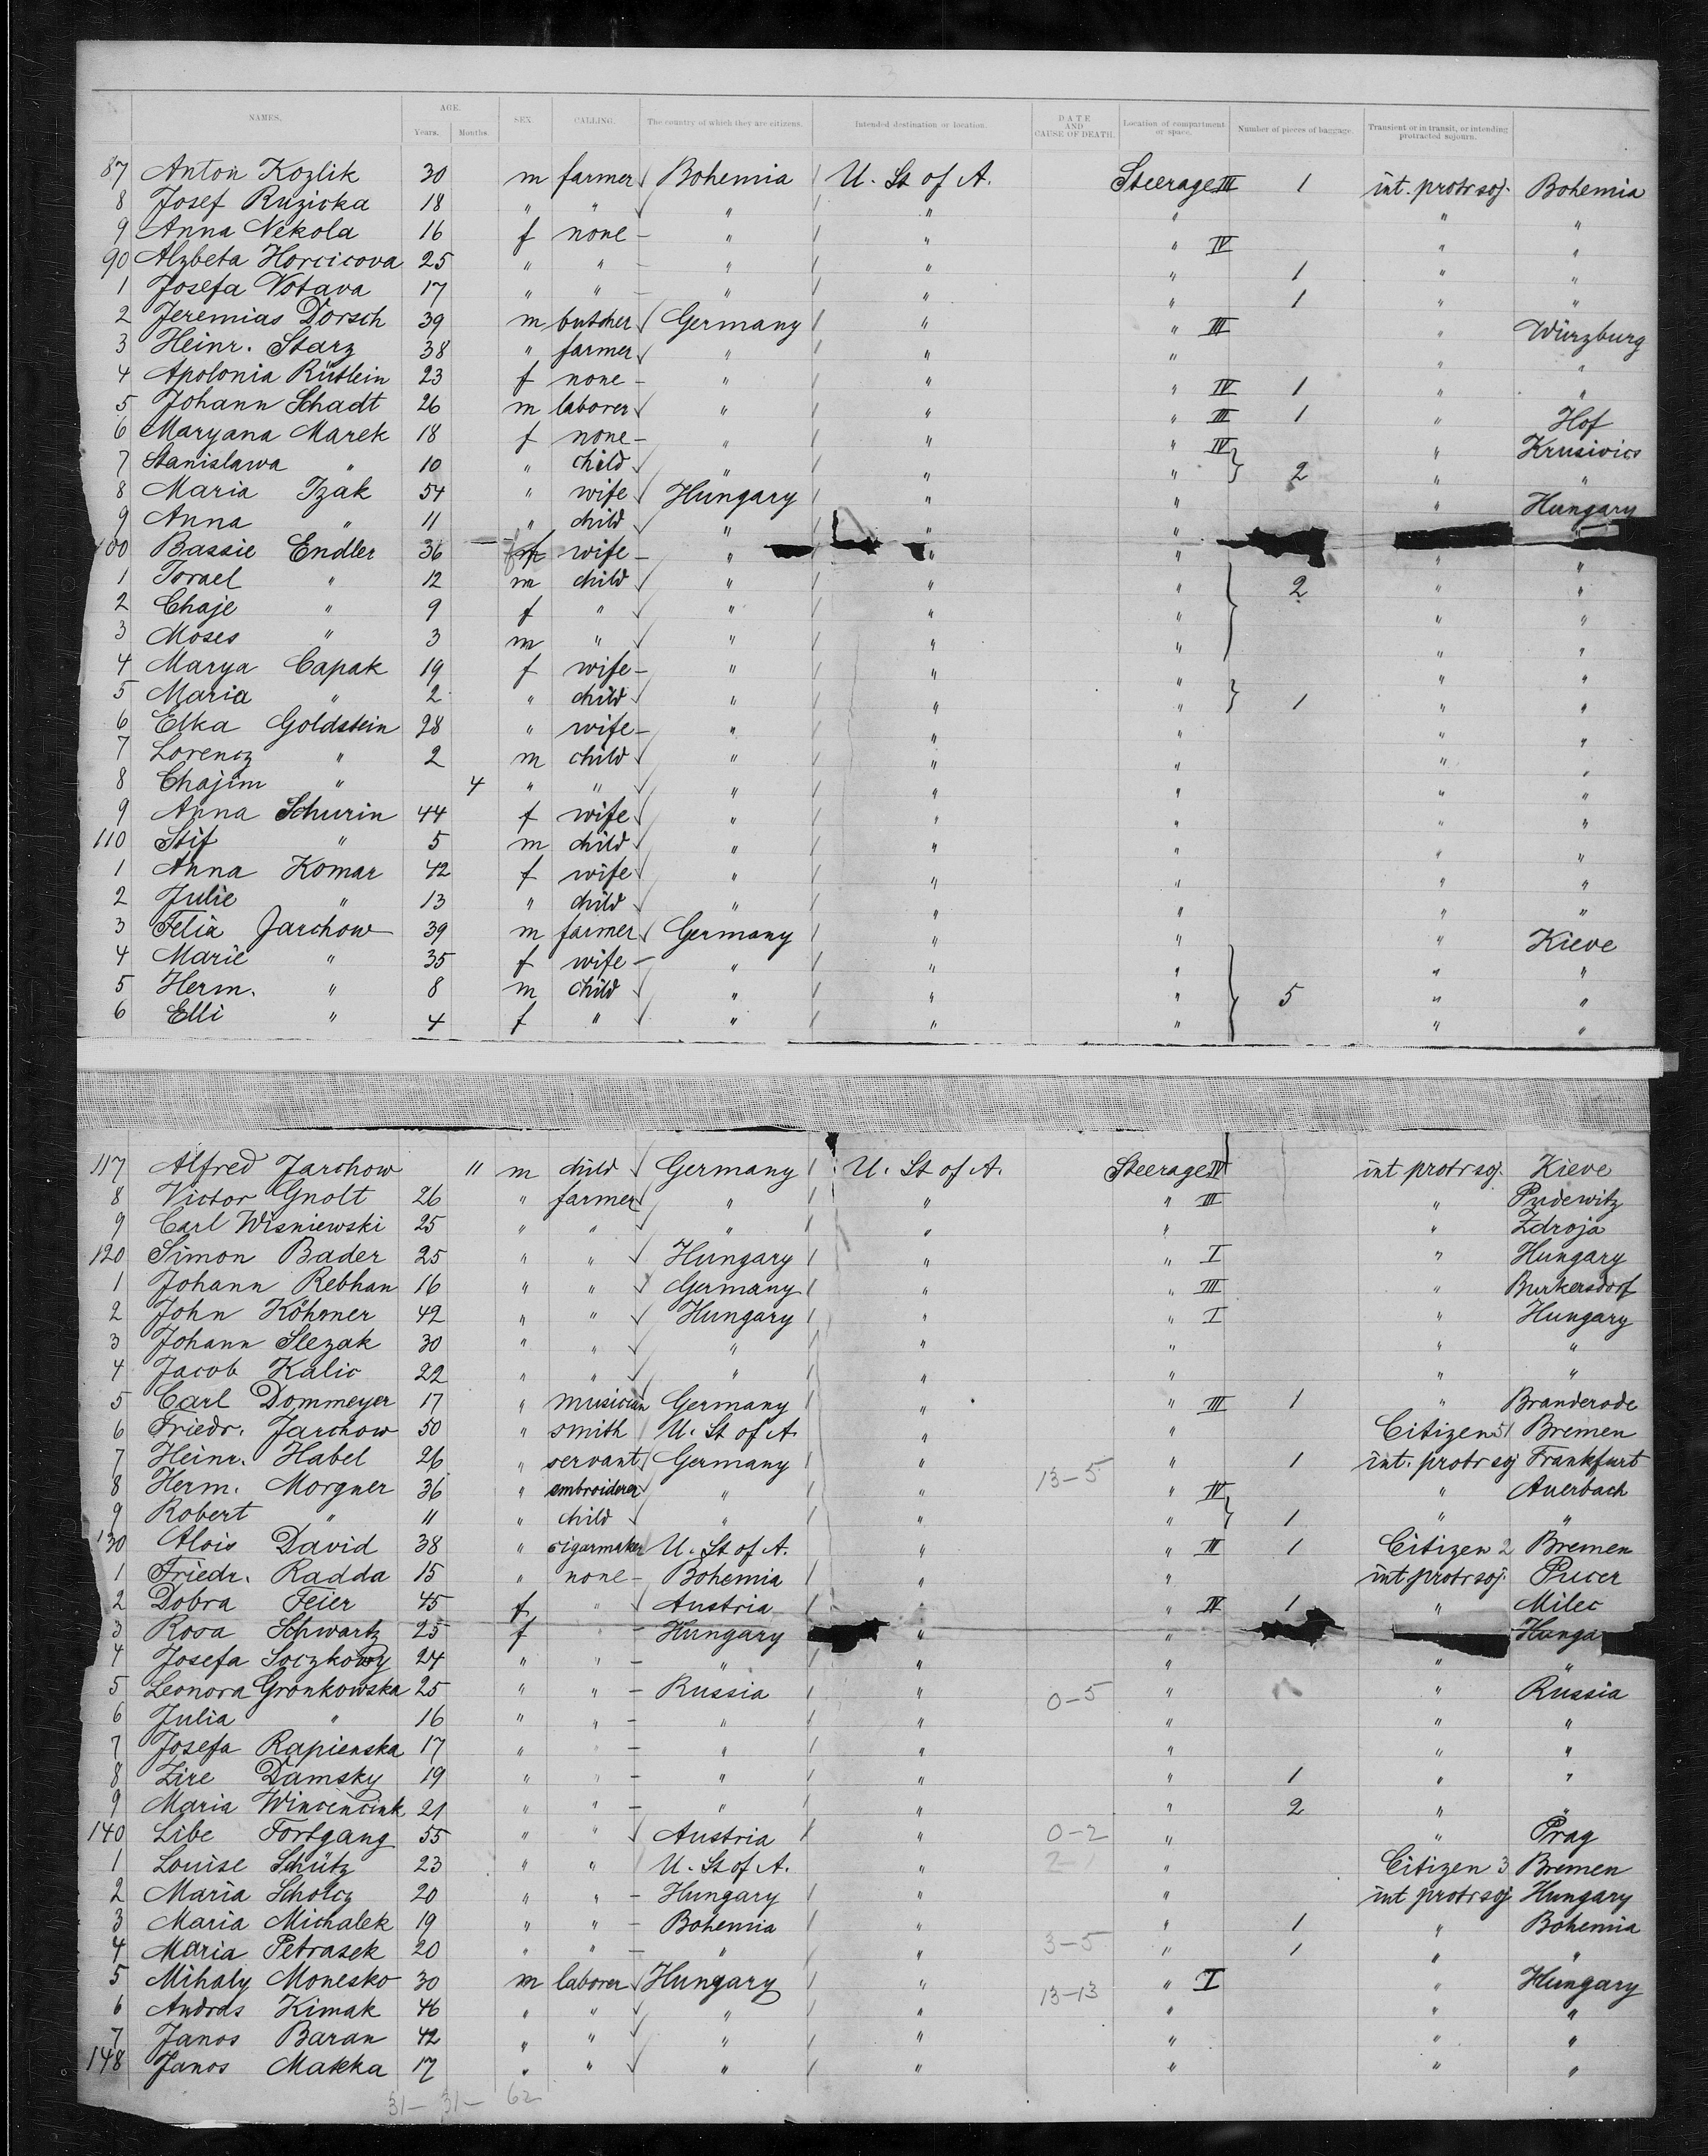 NAMES. AGE. Years. Months. SEX CALLING. The country of which they are citizens. Intended destination or location. DATE AND CAUSE OF DEATH. Location of compartment or space. Number of pieces of baggage. Transient or in transit, or intending protracted sojourn.
87 Anton Kozlik 30 m farmer Bohemia U. St of A. Steerage III 1 int. protr soj. Bohemia
8 Josef Ruzicka 18 " " " " " " "
9 Anna Nekola 16 f none " " " IV " "
90 Alzbeta Horcicova 25 " " " " " 1 " "
1 Josefa Votava 17 " " " " " 1 " "
2 Jeremias Dorsch 39 m butcher Germany " " III " Würzburg
3 Heinr. Starz 38 " farmer " " " " "
4 Apolonia Rütlein 23 f none " " " IV 1 " "
5 Johann Schadt 26 m laborer " " " III 1 " Hof
6 Maryana Marek 18 f none " " " IV " Krusivics
7 Stanislawa " 10 " child " " " 2 " "
8 Maria Izak 54 " wife Hungary " " " Hungary
9 Anna " 11 " child " " " "
100 Bassie Endler 36 f wife " " " " "
1 Israel " 12 m child " " " 2 " "
2 Chaje " 9 f " " " " " "
3 Moses " 3 m " " " " " "
4 Marya Capak 19 f wife " " " " "
5 Maria " 2 " child " " " 1 " "
6 Elka Goldstein 28 " wife " " " " "
7 Lorencz " 2 m child " " " " "
8 Chajim " 4 " " " " " " "
9 Anna Schurin 44 f wife " " " " "
110 Stif " 5 m child " " " " "
1 Anna Komar 42 f wife " " " " "
2 Julie " 13 " child " " " " "
3 Felia Jarchow 39 m farmer Germany " " " Kieve
4 Marie " 35 f wife " " " " "
5 Herm. " 8 m child " " " 5 " "
6 Elli " 4 f " " " " " "
117 Alfred Jarchow 11 m child Germany U. St of A. Steerage IV int protr soj. Kieve
8 Victor Gnolt 26 " farmer " " " III " Pudewitz
9 Carl Wisniewski 25 " " " " " " Zdroja
120 Simon Bader 25 " " Hungary " " I " Hungary
1 Johann Rebhan 16 " " Germany " " III " Burkersdorf
2 John Köhmer 42 " " Hungary " " I " Hungary
3 Johann Slezak 30 " " " " " " "
4 Jacob Kalic 22 " " " " " " "
5 Carl Dommeyer 17 " musician Germany " " III 1 " Branderode
6 Friedr. Jarchow 50 " smith U. St of A. " " Citizen 1 Bremen
7 Heinr. Habel 26 " servant Germany " " 1 int. protr soj Frankfurt
8 Herm. Morgner 36 " embroiderer " " 13-5 " IV " Auerbach
9 Robert " 11 " child " " " 1 " "
130 Alois David 38 " cigarmaker U. St of A. " " III 1 Citizen 2 Bremen
1 Friedr. Radda 15 " none Bohemia " " int protr soj. Pucer
2 Dobra Feier 45 f " Austria " " IV 1 " Milec
3 Rosa Schwartz 25 f " Hungary " " Hunga
4 Josefa Soczkowy 24 " " " " " " "
5 Leonora Gronkowska 25 " " Russia " 0-5 " " Russia
6 Julia " 16 " " " " " " "
7 Josefa Rapienska 17 " " " " " " "
8 Zire Damsky 19 " " " " " 1 " "
9 Maria Wincencink 21 " " " " " 2 " "
140 Libe Fortgang 55 " " Austria " 0-2 " " Prag
1 Louise Schütz 23 " " U. St of A. " 2-1 " Citizen 3 Bremen
2 Maria Scholcz 20 " " Hungary " " int protr soj Hungary
3 Maria Michalek 19 " " Bohemia " " 1 " Bohemia
4 Maria Petrasek 20 " " " " 3-5 " 1 " "
5 Mihaly Monesko 30 m laborer Hungary " 13-13 " I " Hungary
6 Andras Kimak 46 " " " " " " "
7 Janos Baran 42 " " " " " " "
148 Janos Makka 17 " " " " " " "
31- 31- 62